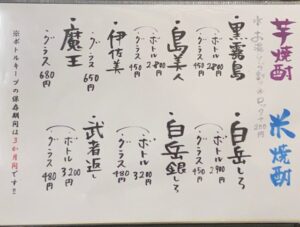 芋焼酎
水 お湯
・黒霧島
ボトル 2,800円
グラス 450円
・白島美人
ボトル 2,800円
グラス 450円
・伊佐美
グラス 650円
・魔王
グラス 680円
米焼酎
・白岳しろ
ボトル 2,900円
グラス 450円
・白岳銀しろ
ボトル 3,200円
グラス 480円
・武者返し
ボトル 3,200円
グラス 480円
※ボトルキープの保存期間は3か月です!!